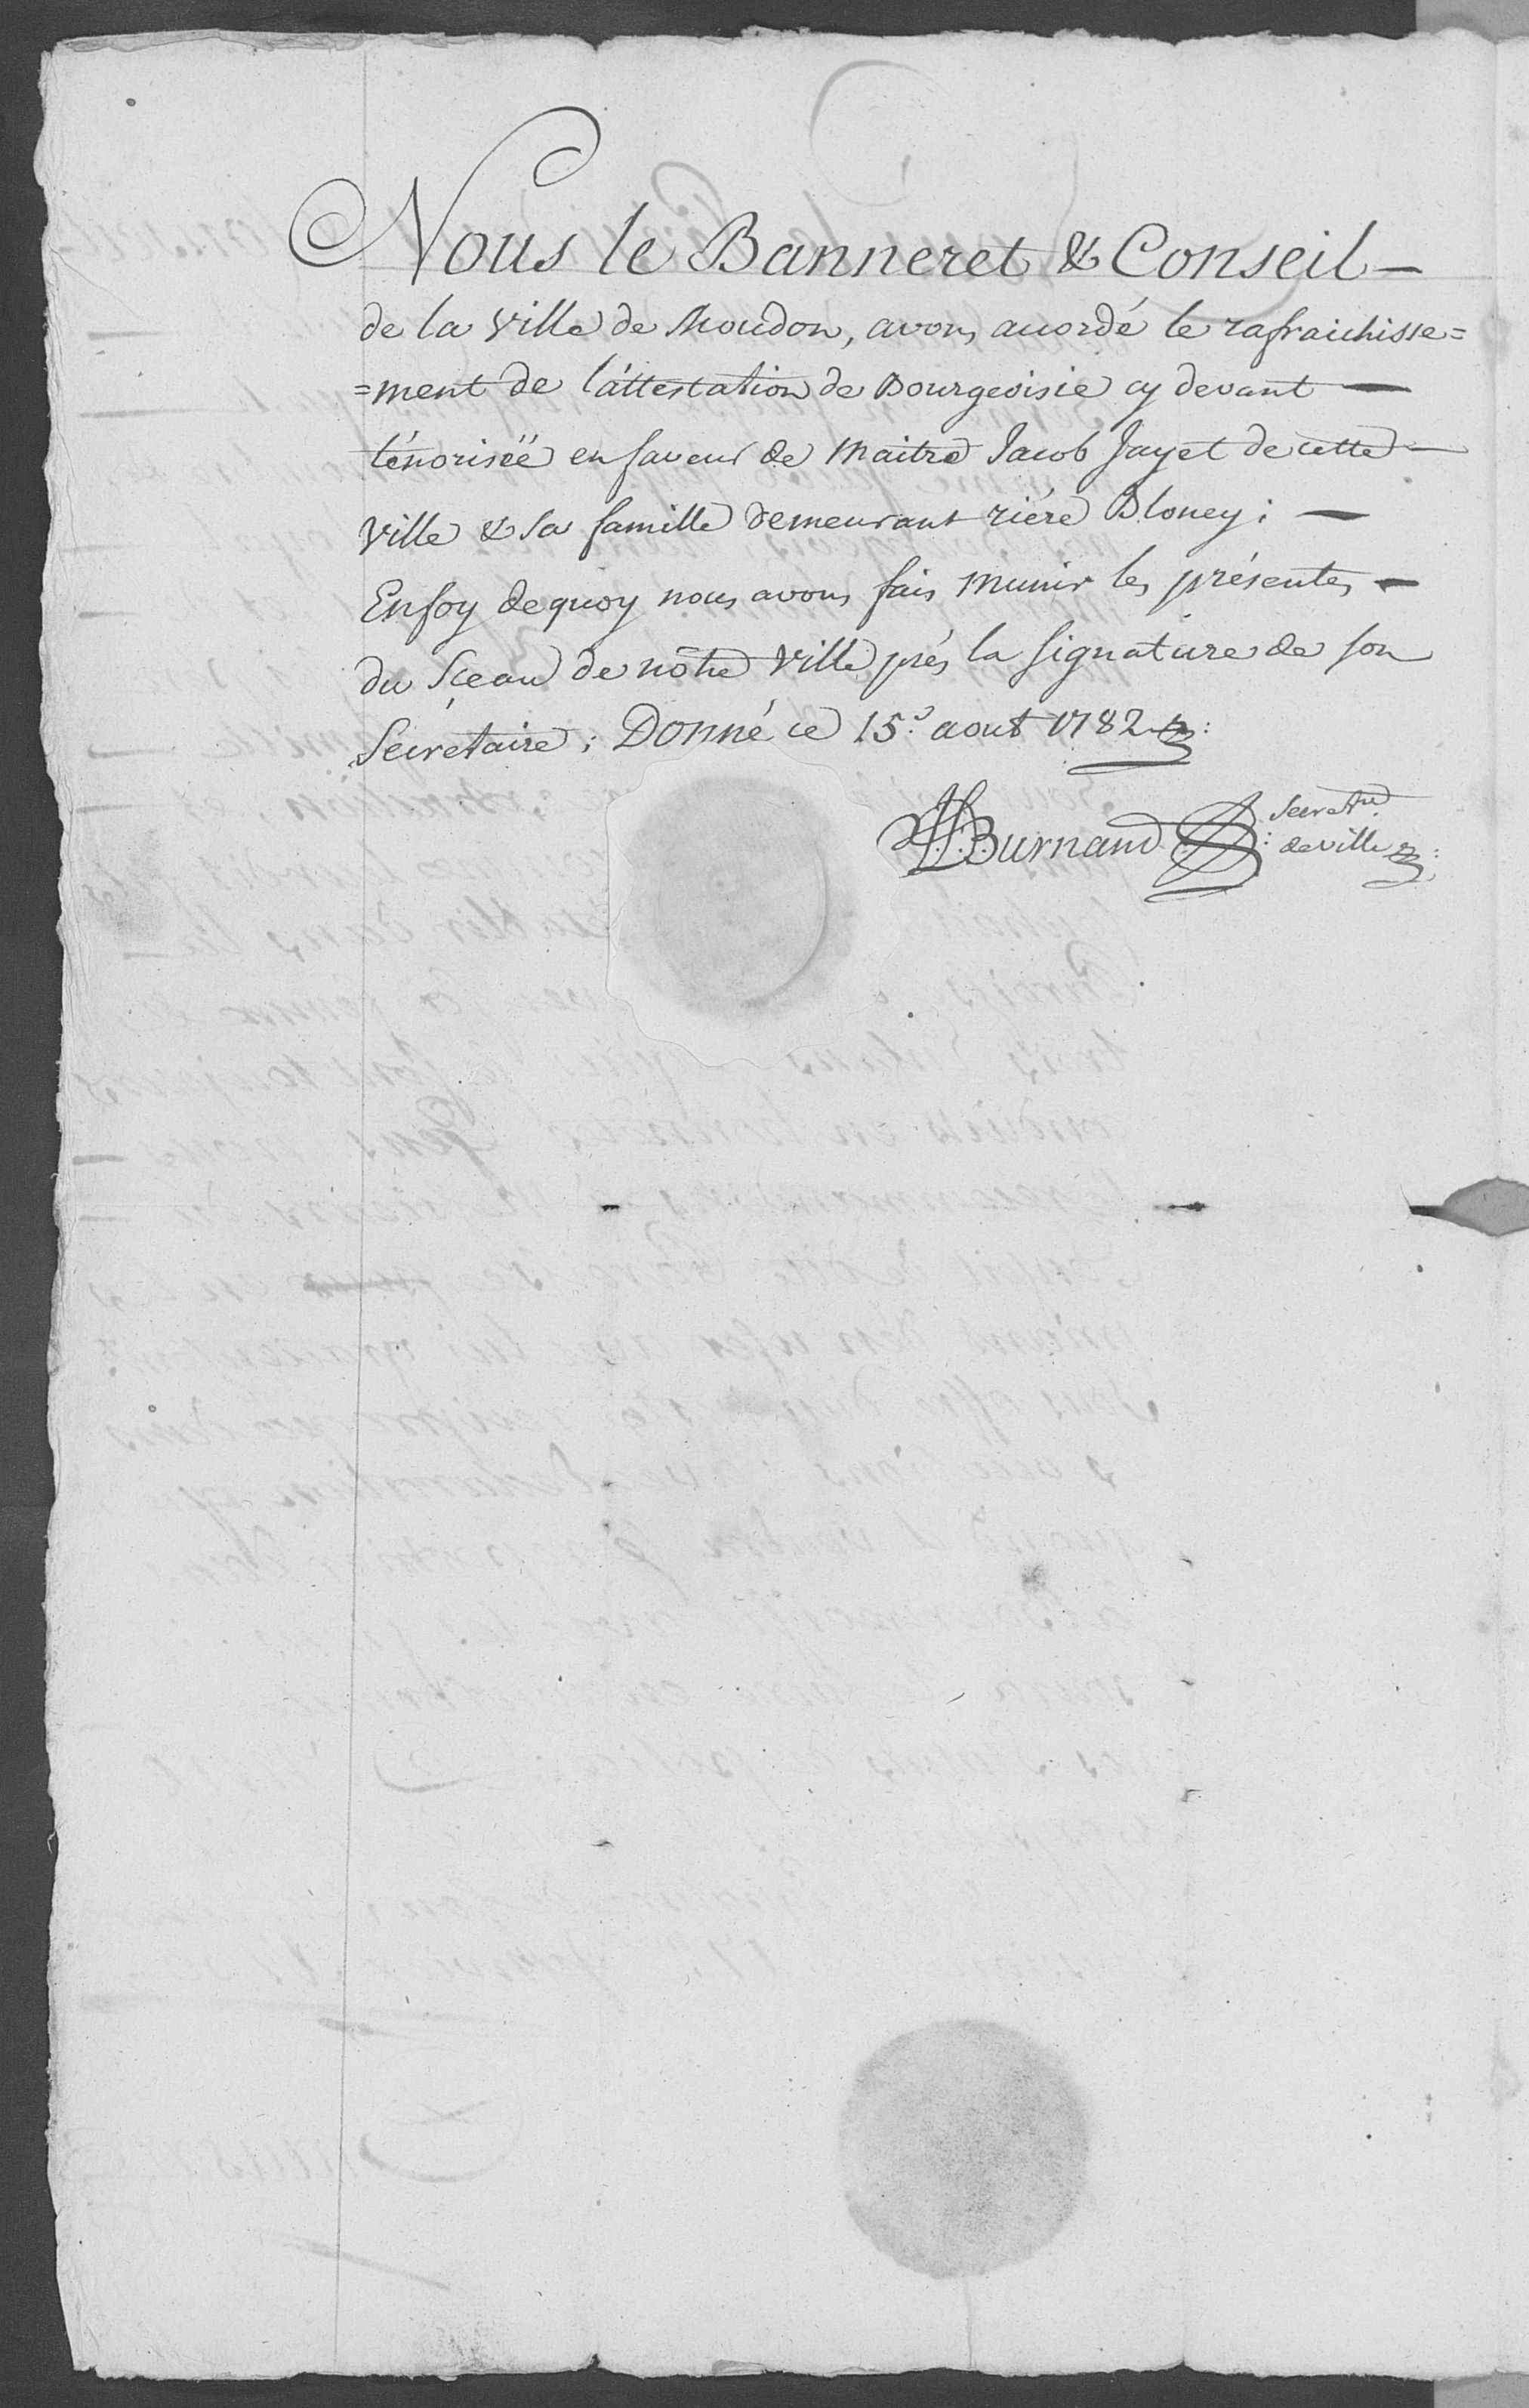 Nous le Banneret & Conseil —
de la Ville de Moudon, avons accordé le rafraichisse=
=ment de l'attestation de Bourgeoisie cy devant —
ténorisée en faveur de Maitre Jacob Jayet de cette —
Ville & sa famille demeurant riére Bloney; —
En foy de quoy nous avons fais munir les présentes —
du Sceau de nôtre Ville prés la signature de son
Secrétaire; Donné ce 15.e aout 1782
Burnand Secret.re
de ville